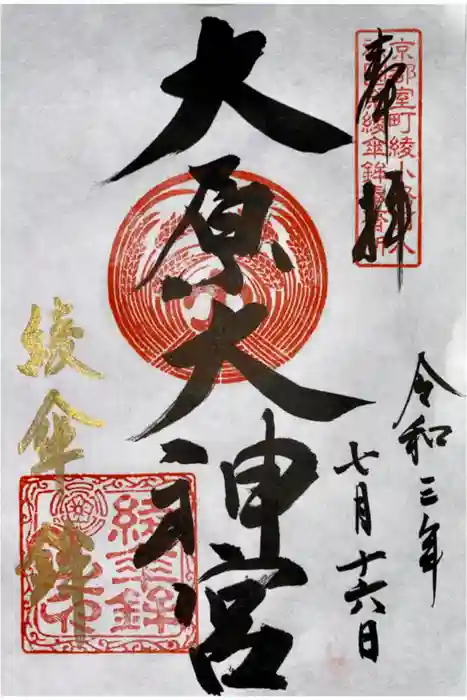 奉拝
京都室町綾小路
綾傘鉾
大原大神宮
令和三年
七月十六日
綾傘鉾
綾傘鉾
之印